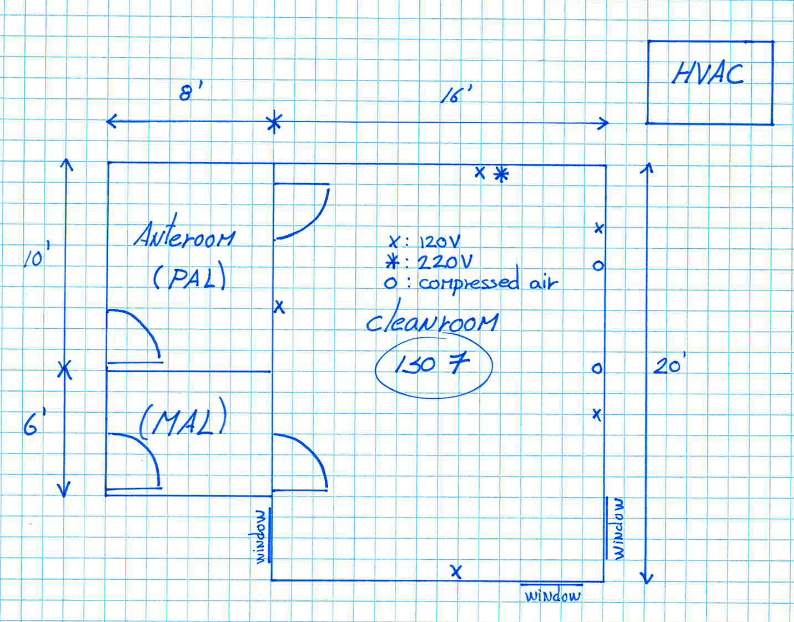 HVAC
8'
16'
Anteroom
(PAL)
10'
x: 120V
*: 220V
o: compressed air
cleanroom
ISO 7
20'
6'
(MAL)
window
window
window